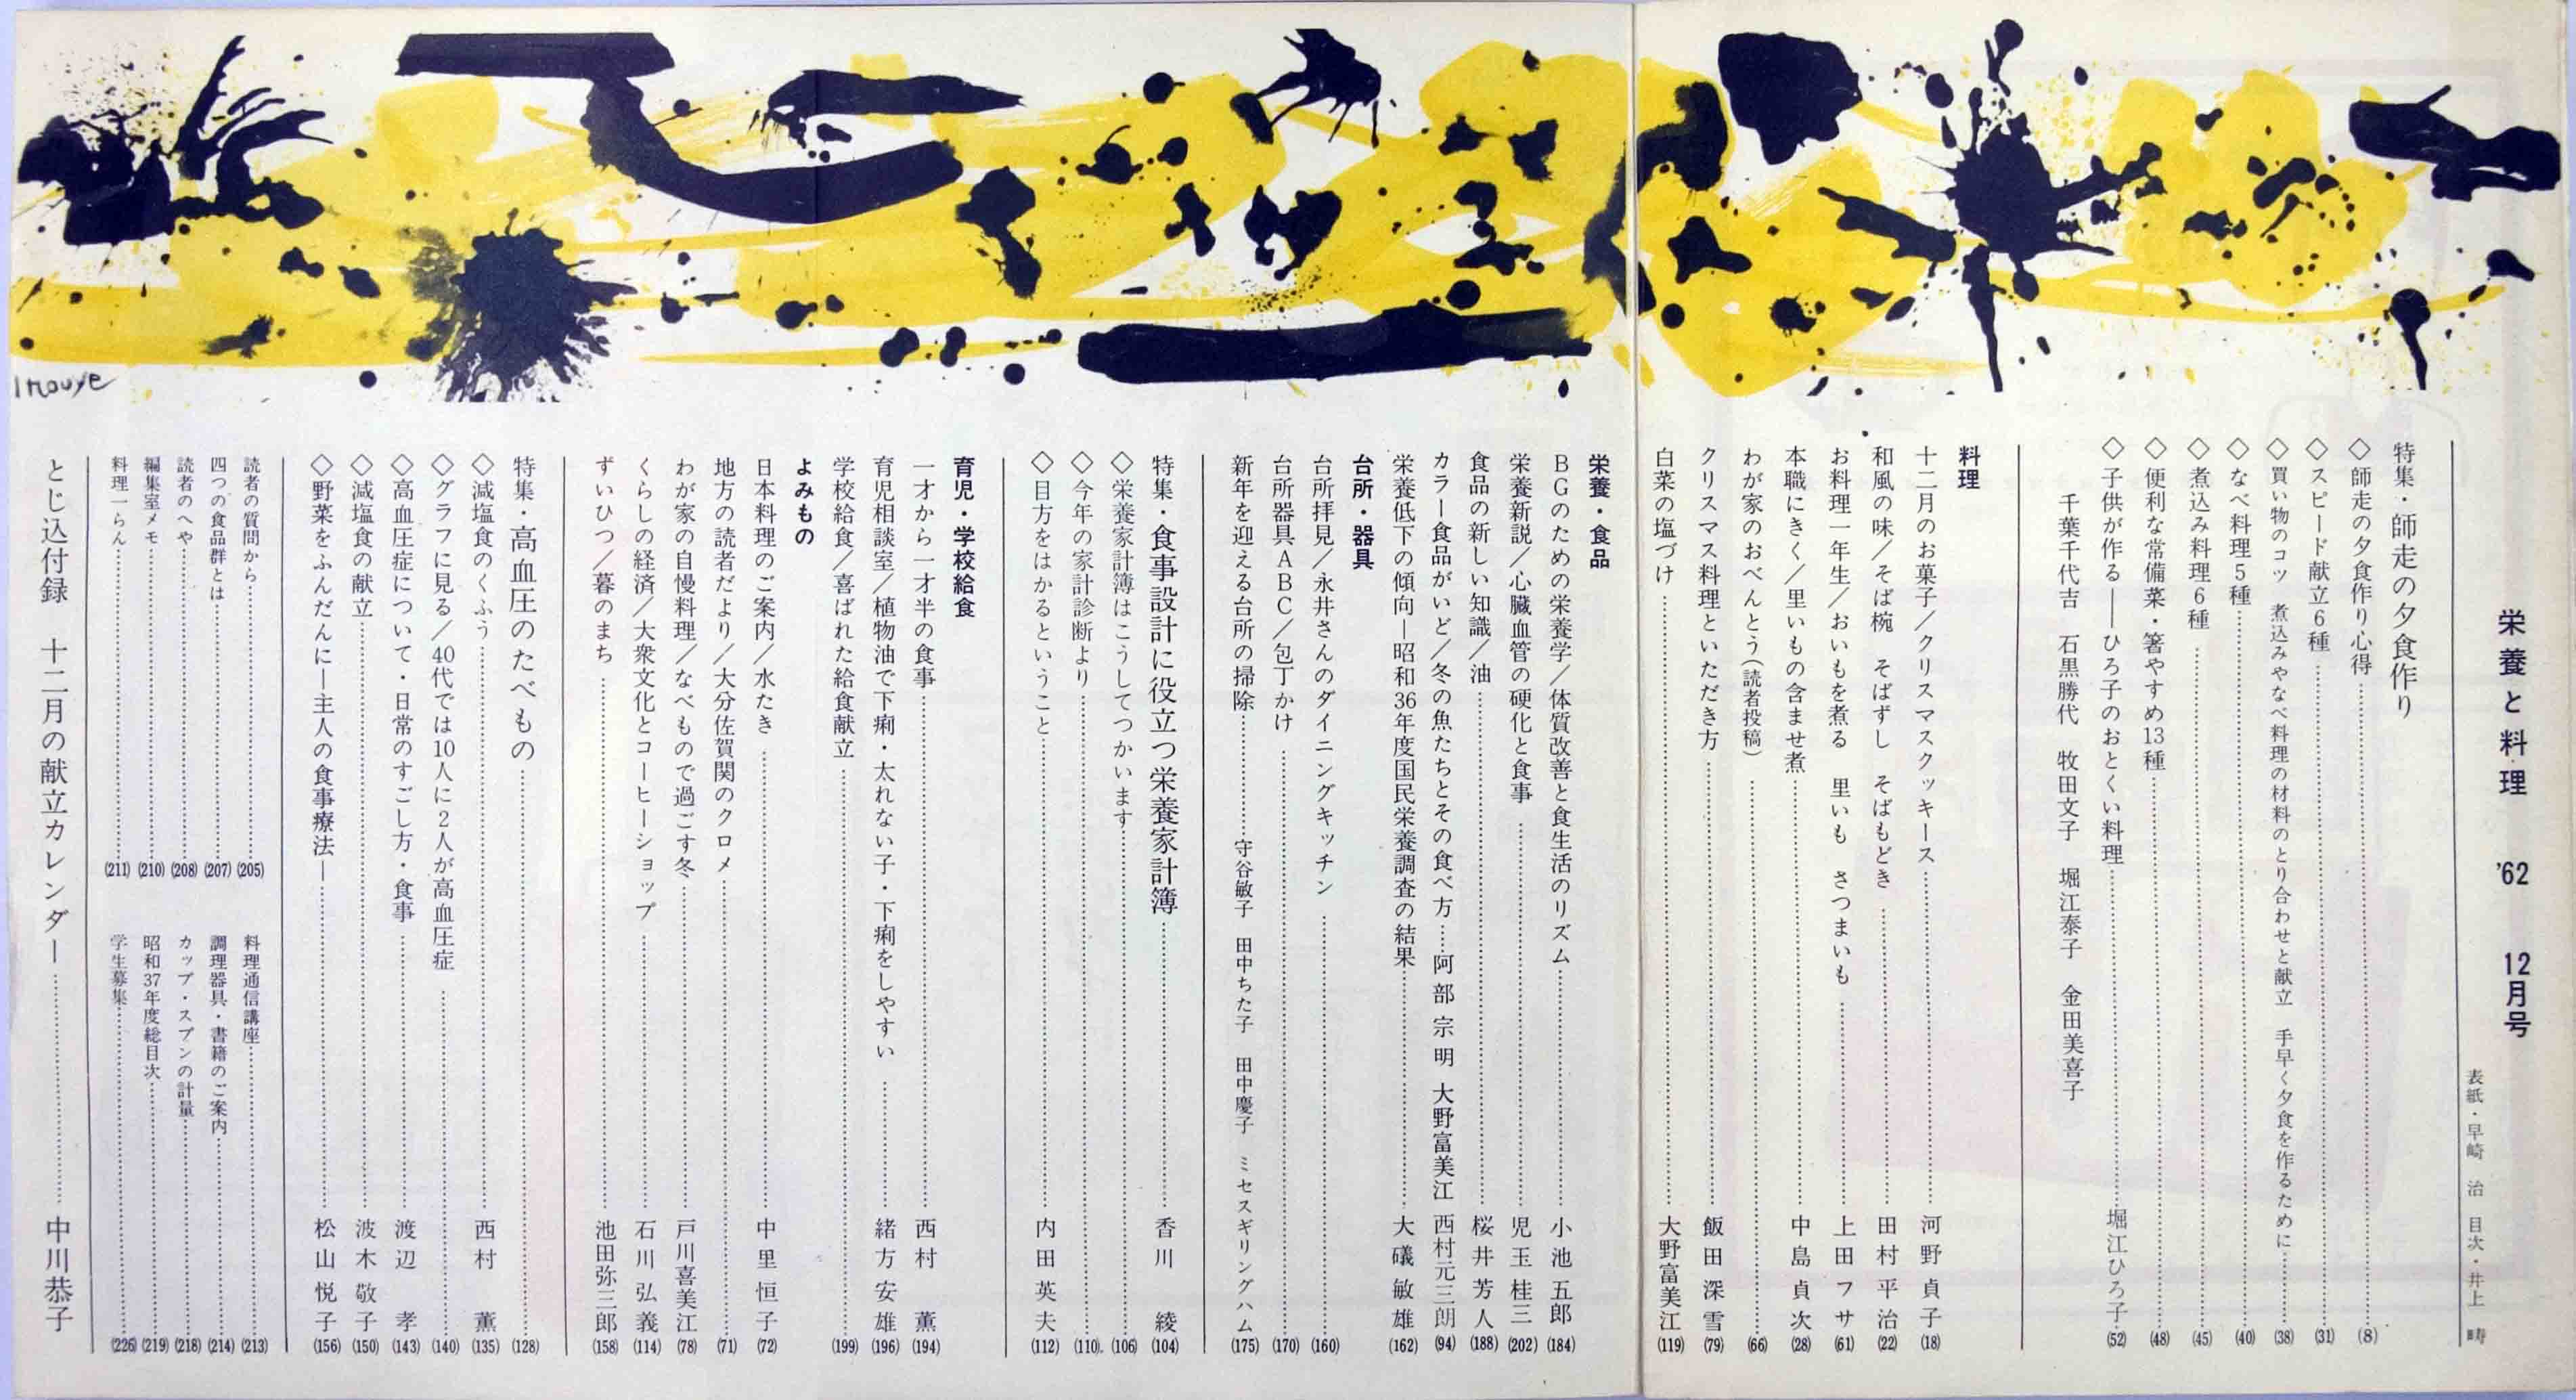 栄養と料理 '62 12月号
表紙・早崎 治 目次・井上
特集・師走の夕食作り
◇師走の夕食作り心得 (8)
◇スピード献立6種 (31)
◇買い物のコツ 煮込みやなべ料理の材料のとり合わせと献立 手早く夕食を作るために (38)
◇なべ料理5種 (40)
◇煮込み料理6種 (45)
◇便利な常備菜・箸やすめ13種 (48)
◇子供が作る——ひろ子のおとくい料理 堀江ひろ子 (52)
千葉千代吉 石黒勝代 牧田文子 堀江泰子 金田美喜子
料理
十二月のお菓子/クリスマスクッキース 河野貞子 (18)
和風の味/そば椀 そばずし そばもどき 田村平治 (22)
お料理一年生/おいもを煮る 里いも さつまいも 上田フサ (61)
本職にきく/里いもの含ませ煮 中島貞次 (28)
わが家のおべんとう(読者投稿) (66)
クリスマス料理といただき方 飯田深雪 (79)
白菜の塩づけ 大野富美江 (119)
栄養・食品
BGのための栄養学/体質改善と食生活のリズム 小池五郎 (184)
栄養新説/心臓血管の硬化と食事 児玉桂三 (202)
食品の新しい知識/油 桜井芳人 (188)
カラー食品がいど/冬の魚たちとその食べ方 阿部宗明 大野富美江 西村元三朗 (94)
栄養低下の傾向—昭和36年度国民栄養調査の結果 大礒敏雄 (162)
台所・器具
台所拝見/永井さんのダイニングキッチン (160)
台所器具ABC/包丁かけ (170)
新年を迎える台所の掃除 守谷敏子 田中ちた子 田中慶子 ミセスギリングハム (175)
特集・食事設計に役立つ栄養家計簿 香川 綾 (104)
◇栄養家計簿はこうしてつかいます (106)
◇今年の家計診断より (110)
◇目方をはかるということ 内田英夫 (112)
育児・学校給食
一才から一才半の食事 西村 薫 (194)
育児相談室/植物油で下痢・太れない子・下痢をしやすい 緒方安雄 (196)
学校給食/喜ばれた給食献立 (199)
よみもの
日本料理のご案内/水たき 中里恒子 (72)
地方の読者だより/大分佐賀関のクロメ (71)
わが家の自慢料理/なべもので過ごす冬 戸川喜美江 (78)
くらしの経済/大衆文化とコーヒーショップ 石川弘義 (114)
ずいひつ/暮のまち 池田弥三郎 (158)
特集・高血圧のたべもの (128)
◇減塩食のくふう 西村 薫 (135)
◇グラフに見る/40代では10人に2人が高血圧症 (140)
◇高血圧症について・日常のすごし方・食事 渡辺 孝 (143)
◇減塩食の献立 波木敬子 (150)
◇野菜をふんだんに—主人の食事療法— 松山悦子 (156)
読者の質問から (205)
四つの食品群とは (207)
読者のへや (208)
編集室メモ (210)
料理一らん (211)
料理通信講座 (213)
調理器具・書籍のご案内 (214)
カップ・スプンの計量 (218)
昭和37年度総目次 (219)
学生募集 (226)
とじ込付録 十二月の献立カレンダー 中川恭子
Inouye